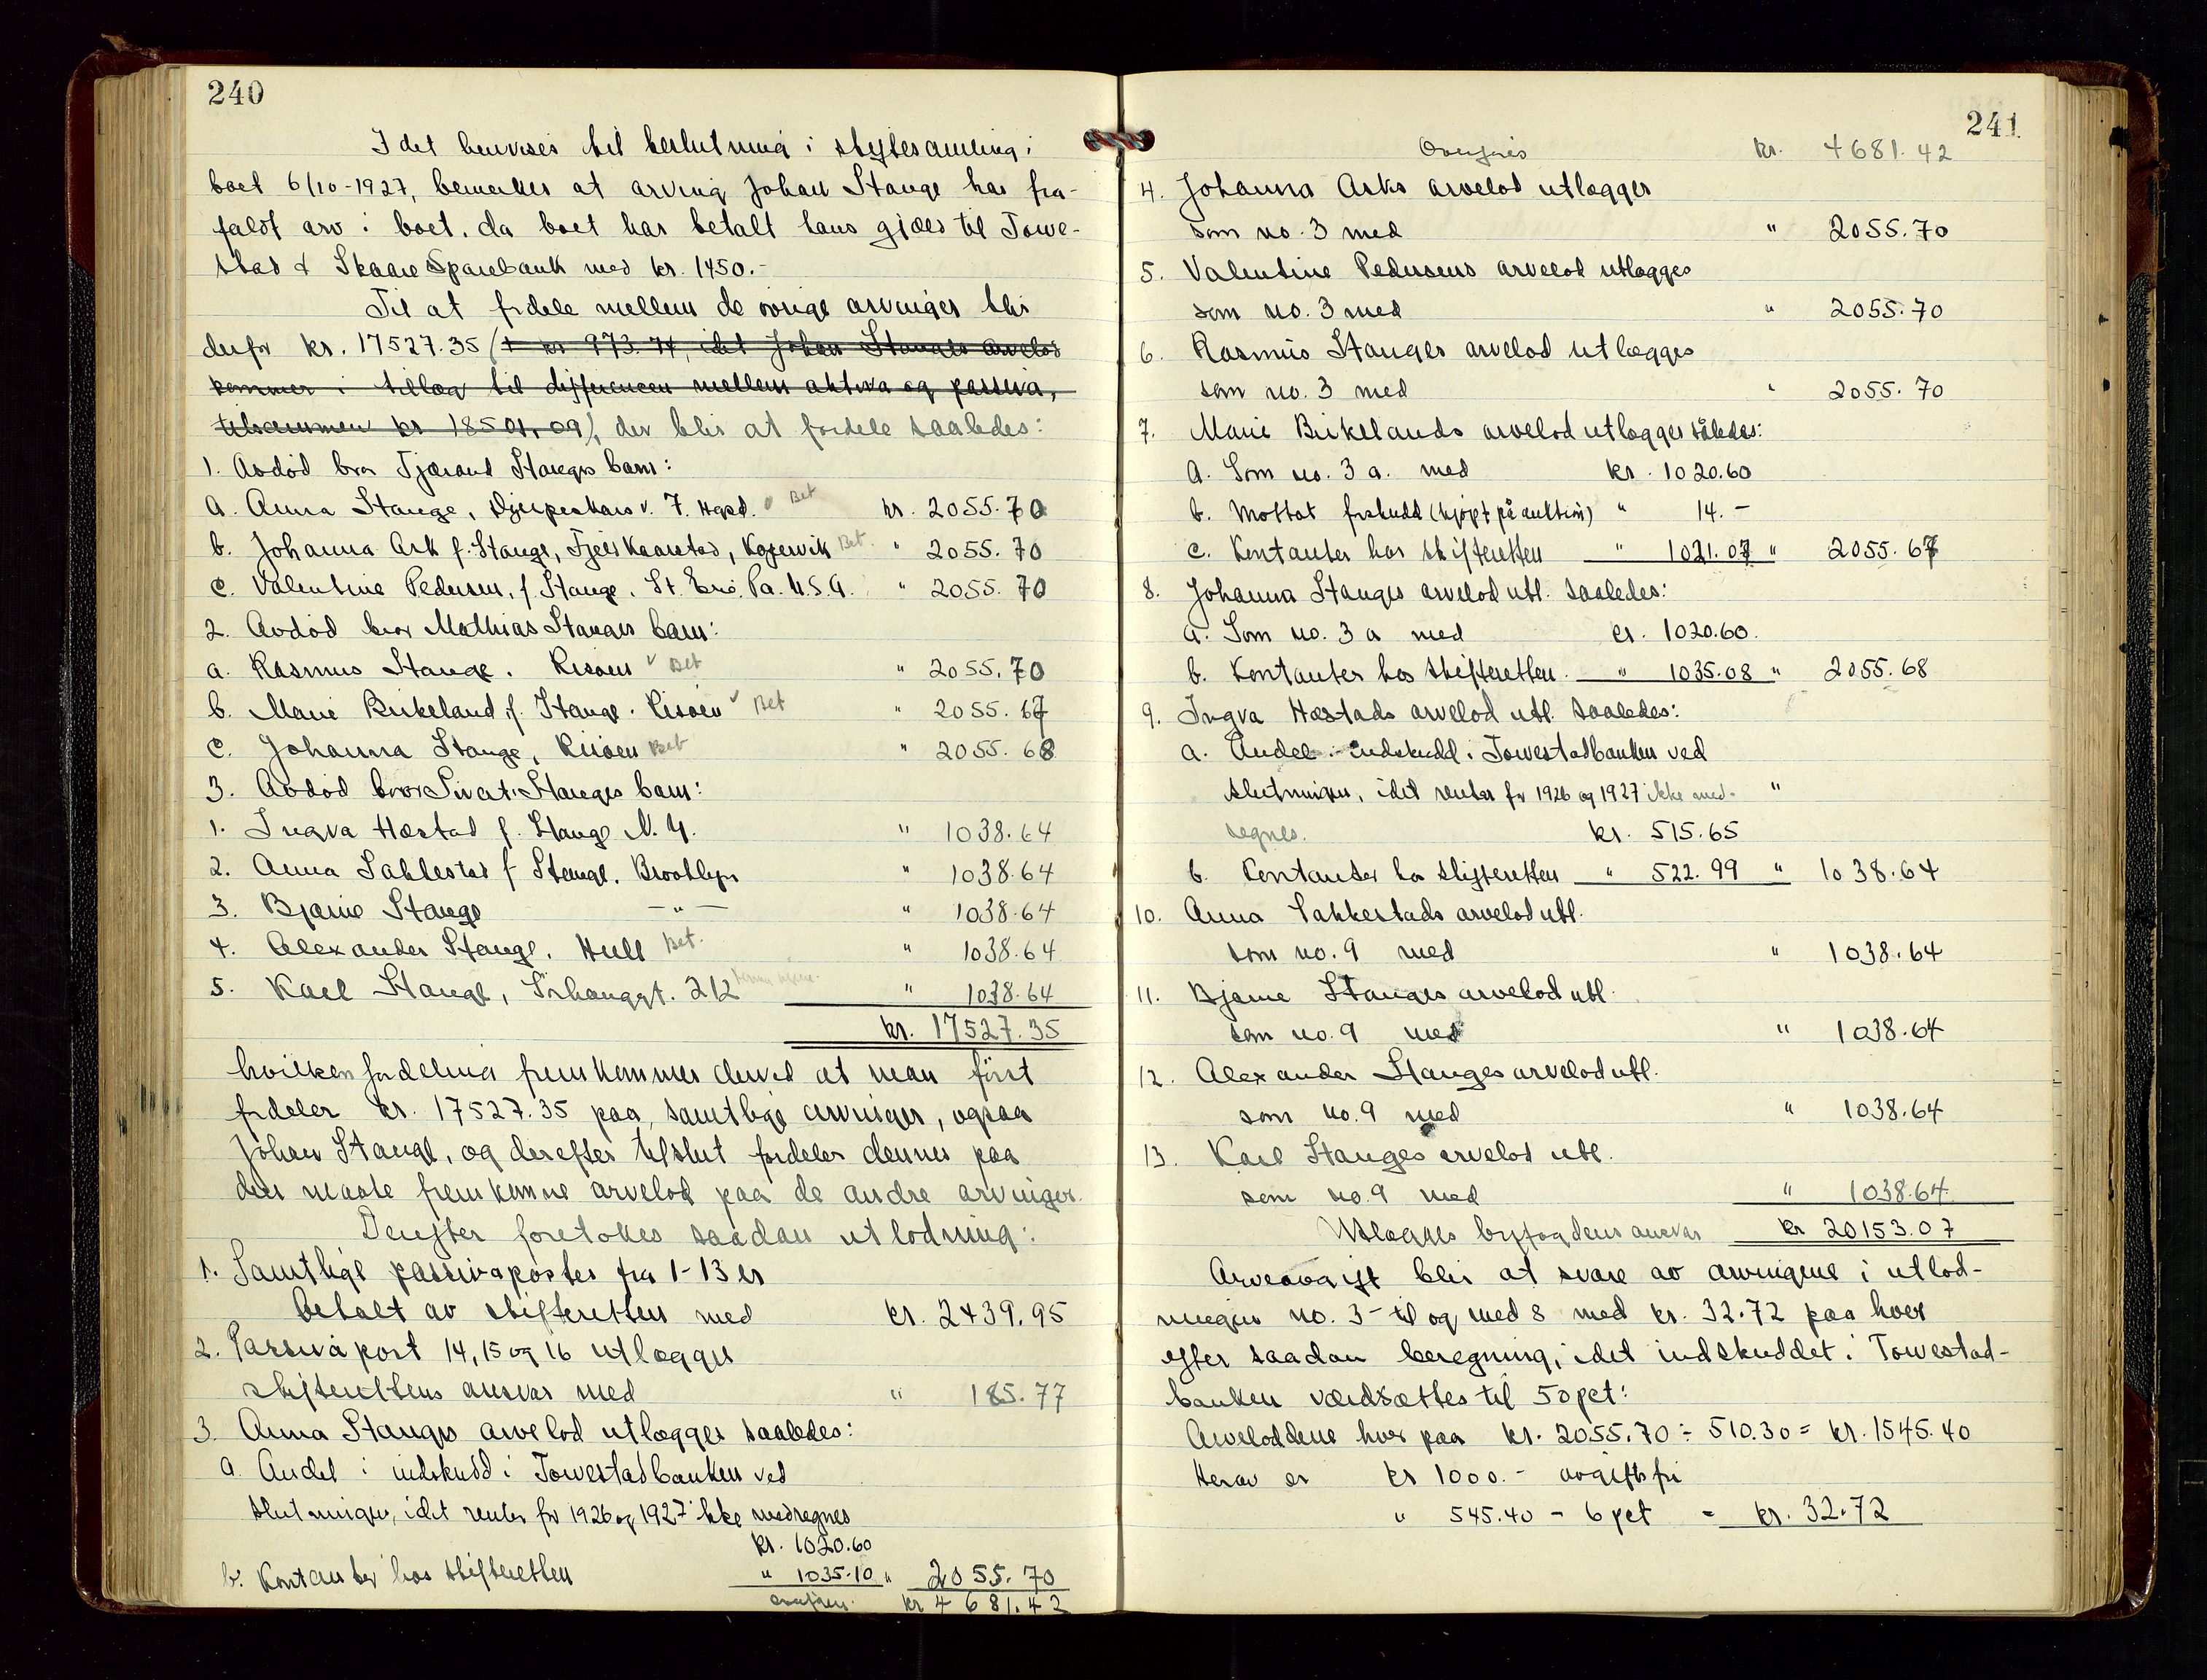 240
I det henvises til beslutning i skiftesamling i
boet 6/10-1927, bemerkes at arving Johan Stange har fra-
faldt arv i boet, da boet har betalt hans gjæld til Torve-
stad & Skaare Sparebank med kr. 1450.-
Til at fordele mellem de övrige arvinger blir
derfor kr. 17527.35 (+ kr 973.74, idet Johan Stanges arvelod
kommer i tillæg til differencen mellem aktiva og passiva,
tilsammen kr 18501,09), der blir at fordele saaledes:
1. Avdöd bror Tjærand Stanges barn:
a. Anna Stange, Djupeskars v. 7. Hgsd. Bet kr. 2055.70
b. Johanna Ask f. Stange, Fjelskaarstad, Kopervik Bet. " 2055.70
c. Valentine Pedersen, f. Stange, St. Erie, Pa. U.S.A. " 2055.70
2. Avdöd bror Mathias Stanges barn:
a. Rasmus Stange, Risöen Bet " 2055.70
b. Marie Birkeland, f. Stange. Risöen Bet " 2055.67
c. Johanna Stange, Risöen Bet " 2055.68
3. Avdöd bror Sivert Stanges barn:
1. Ingva Hæstad f. Stange N.Y. " 1038.64
2. Anna Sakkestad f Stange. Brooklyn " 1038.64
3. Bjarne Stange — " — " 1038.64
4. Alexander Stange, Hull Bet. " 1038.64
5. Karl Stange, Sörhauggt. 212 " 1038.64
kr. 17527.35
hvilken fordeling fremkommer derved at man först
fordeler kr. 17527.35 paa samtlige arvinger, ogsaa
Johan Stange, og derefter tilslut fordeler dennes paa
den maate fremkomne arvelod paa de andre arvinger.
Derefter foretokes saadan utlodning:
1. Samtlige passivaposter fra 1-13 er
betalt av skifteretten med kr. 2439.95
2. Passiva post 14, 15 og 16 utlægges
skifterettens ansvar med " 185.77
3. Anna Stanges arvelod utlægges saaledes:
a. Andel i indskudd i Torvestadbanken ved
slutningen, idet renter for 1926 og 1927 ikke medregnes
kr. 1020.60
b. Kontanter hos skifteretten " 1035.10 " 2055.70
overföres kr 4681.42
241
Overföres kr. 4681.42
4. Johanna Asks arvelod utlægges
som no. 3 med " 2055.70
5. Valentine Pedersens arvelod utlægges
som no. 3 med " 2055.70
6. Rasmus Stanges arvelod utlægges
som no. 3 med " 2055.70
7. Marie Birkelands arvelod utlægges således:
a. Som no. 3 a. med kr. 1020.60
b. Mottat forskudd (kjöpt på auktion) " 14.-
c. Kontanter hos skifteretten " 1021.07 " 2055.67
8. Johanna Stanges arvelod utl. saaledes:
a. Som no. 3 a med kr. 1020.60.
b. Kontanter hos skifteretten. " 1035.08 " 2055.68
9. Ingva Hæstads arvelod utl. saaledes:
a. Andel i indskudd i Torvestadbanken ved
slutningen, idet renter for 1926 og 1927 ikke med- "
regnes. kr. 515.65
b. Kontanter hos skifteretten " 522.99 " 1038.64
10. Anna Sakkestads arvelod utl.
som no. 9 med " 1038.64
11. Bjarne Stanges arvelod utl.
som no. 9 med " 1038.64
12. Alexander Stanges arvelod utl.
som no. 9 med " 1038.64
13. Karl Stanges arvelod utl.
som no. 9 med " 1038.64
Utlægges byfogdens ansvar kr 20153.07
Arveavgift blir at svare av arvingene i utlod-
ningen no. 3- til og med 8 med kr. 32.72 paa hver
efter saadan beregning, idet indskuddet i Torvestad-
banken værdsættes til 50 pct:
Arveloddene hver paa kr. 2055.70 ÷ 510.30 = kr. 1545.40
Herav er kr 1000.- avgiftsfri
" 545.40 - 6 pct = kr. 32.72